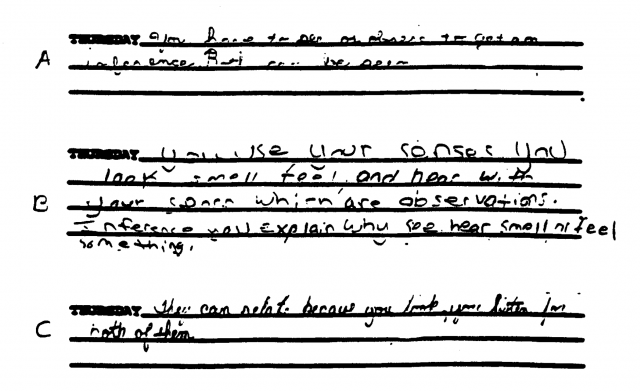 A THURSDAY You have to see or observe to get an
inference. But can be seen
B THURSDAY You use your senses you
look smell feel and hear with
your sences which are observations.
Inference you explain why see hear smell or feel
something.
C THURSDAY They can relate because you look your listen for
both of them